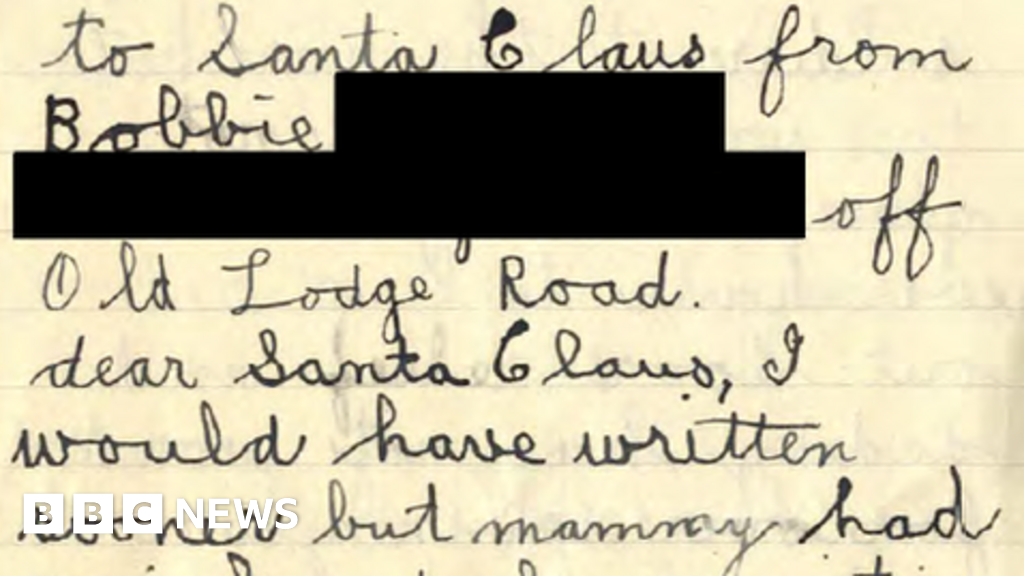 to Santa Claus from
Bobbie
off
Old Lodge Road.
dear Santa Claus, I
would have written
sooner but mammy had
BBC NEWS